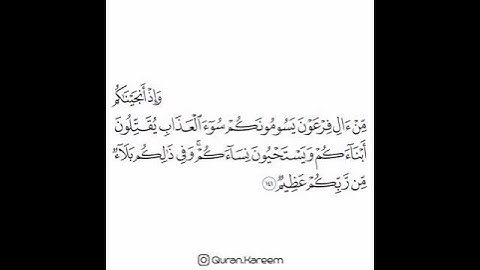 وَإِذۡ أَنجَيۡنَٰكُم
مِّنۡ ءَالِ فِرۡعَوۡنَ يَسُومُونَكُمۡ سُوٓءَ ٱلۡعَذَابِ يُقَتِّلُونَ
أَبۡنَآءَكُمۡ وَيَسۡتَحۡيُونَ نِسَآءَكُمۡۚ وَفِي ذَٰلِكُم بَلَآءٞ
مِّن رَّبِّكُمۡ عَظِيمٞ ١٤١
Quran.Kareem